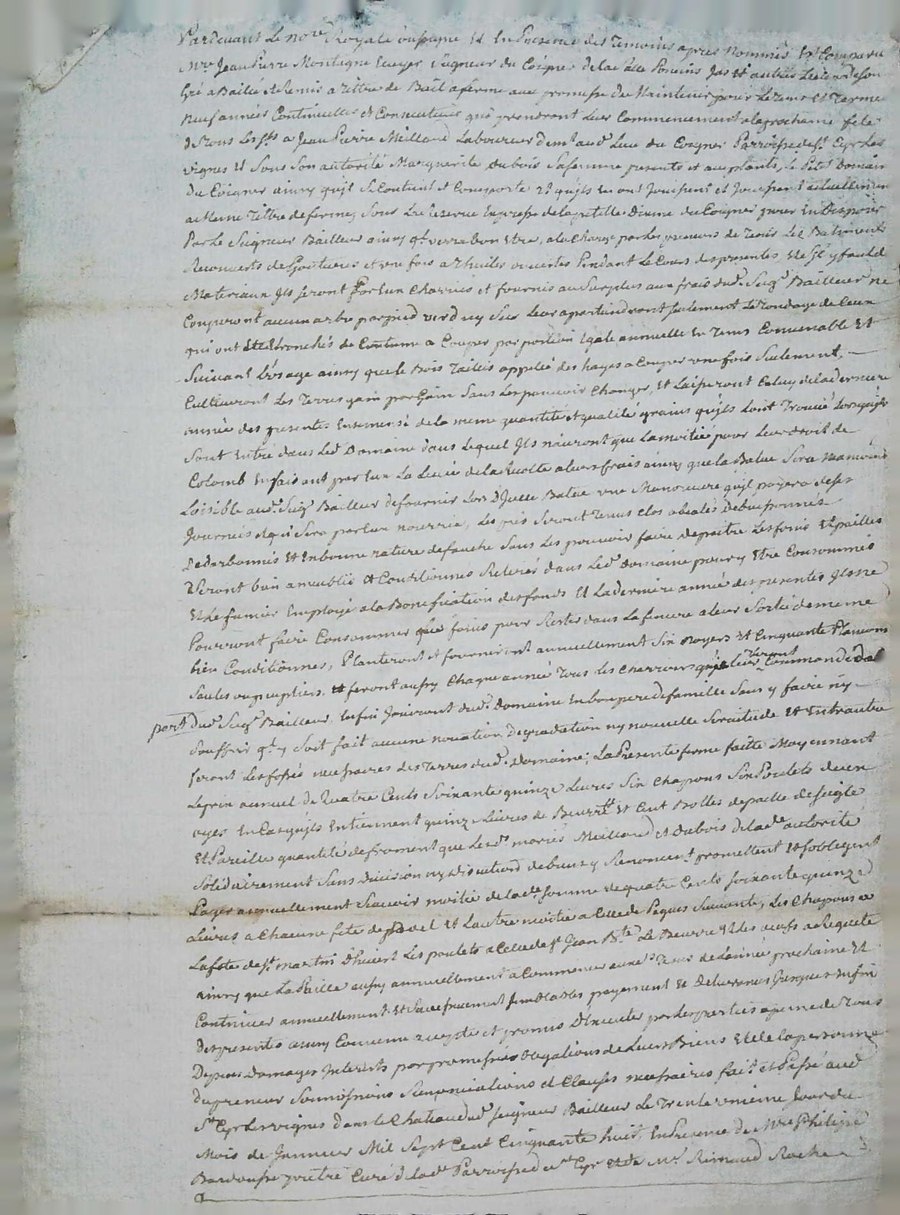 Pardevant Le no.re Royale soussigné et En Presence des Temoins apres Nommés Est Comparu
M.re Jean Pierre Montagne Ecuyer Seigneur du Coigner de la Poncins Jas et autres Lieux de son
Gré a Baillé et Remis a Tittre de Bail a ferme avec promesse de Maintenir pour Le tems Et Terme
Neuf années Continuelles et Consecutives qui prendront Leur Commencement a la prochaine fête
de tous Les S.ts a Jean Pierre Meilland Laboureur dem.t aud. Lieu du Coigner Parroisse de S.t Cyr Les
vignes Et Sous Son autorité Marguerite dubois Sa femme presents et acceptants, Le Petit Domaine
du Coigner ainsy qu'il Se Contient et Comporte Et qu'ils En ont Jouissent et Jouissent actuellement
au Meme Tittre de ferme, Sous La Reserve Expresse de la petite du Coigner pour En Disposer
Par Le Seigneur Bailleur ainsy q.l verra bon Etre, a la Charge par Les preneurs de Tenir Les Batiments
Recouverts de Goutieres et une fois a Thuiles ouvertes Pendant Le Cours des presentes, Et S'il y faut de
Materiaux Ils Seront Par Eux Charriés et fournis au Surplus aux frais dud. Seig.r Bailleur ne
Couperont aucun arbre par pied verd ny Sec Leur apartiendront Seulement Le rondage de Ceux
qui ont Eté Etronchés de Coutume a Couper par portion Egale annuelle En Tems Convenable Et
Suivant L'usage ainsy que le Bois Taillis appellé des hayes a Couper une fois Seulement,
Cultiveront Les Terres gain par Gain Sans Les pouvoir Changer, Et Laisseront Celuy de la derniere
année des presentes Ensemensé de la meme quantité et qualité grains qu'ils L'ont Trouvé Lorsqu'ils
Sont Entré dans Led. Domaine dans Lequel Ils n'auront que La moitié pour Leur droit de
Colomb En faisant par Eux La Levée de la Recolte a leurs frais ainsy que la Batue Sera Néamoins
Loisible aud. Seig.r Bailleur de fournir Lors d'Icelle Batue une Manoeuvre qu'il payera de Ses
Journées Et qui Sera par Eux nourrie, Les prés Seront Tenus Clos abealés debuissonnés
Dedarbonnés Et En bonne nature de fauche Sans Les pouvoir faire depaitre Les foins Et pailles
Seront bien ameublis Et Conditionnés Reserés dans Led. Domaine pour y Etre Consommés
Et Le fumier Employé a la Bonification des fonds Et La derniere année des presentes Ils ne
Pourront faire Consommer que foins pour Rester dans La feniere a leur Sortie de meme
bien Conditionnés, Planteront et fourniront annuellement Six Noyers Et Cinquante Plançons
Saules ou peupliers. Et feront aussy Chaque année Tous Les Charrois qu'il leur Seront Commandé de la
part dud. Seig.r Bailleur, Enfin Jouiront dud. Domaine En bon pere de famille Sans y faire ny
Souffrir q.l y Soit fait aucune novation degradation ny nouvelle Servitude Et Entr'autre
feront Les fossés necessaires des Terres dud. Domaine; La Presente ferme faite Moyennant
Le prix annuel de Quatre Cents Soixante quinze Livres Six Chapons Six Poulets deux
oyes En Cas qu'ils En tiennent quinze Livres de Beurre Et Cent Bottes de paille de Seigle
Et Pareille quantité de froment que Les d. mariés Meilland et Dubois de lad.e autorité
Solidairement Sans division ny discution de biens y Renoncent promettent Et S'obligent
Payer annuellement Scavoir moitié de lad.e Somme de quatre Cents Soixante quinze
Livres a Chacune fête de Noel Et L'autre moitié a Celle de Paques Suivante, Les Chapons a
La fete de S.t Martin d'hiver Les poulets a Celle de S.t Jean B.te Le Beurre Et Les oeufs a Requete
ainsy que La Paille aussy annuellement a Commencer auxd. Tems de L'année prochaine Et
Continuer annuellement Et Successivement Semblables payement Et delivrances Jusques Enfin
des presentes ainsy Convenu accepté et promis D'Executer par Les parties a peine de Tous
Depens Domages Interets par promesses obligations de Leurs Biens Et de la personne
du preneur Soumissions Renonciations et Clauses necessaires fait et Passé aud.
S.t Cyr Les vignes dans le Chateau dud. Seigneur Bailleur Le Trente unieme Jour du
Mois de Janvier Mil Sept Cent Cinquante huit En Presence de M.re Philipe
Pretre Curé de lad. Parroisse de S.t Cyr Et de M.r Rimaud Roche